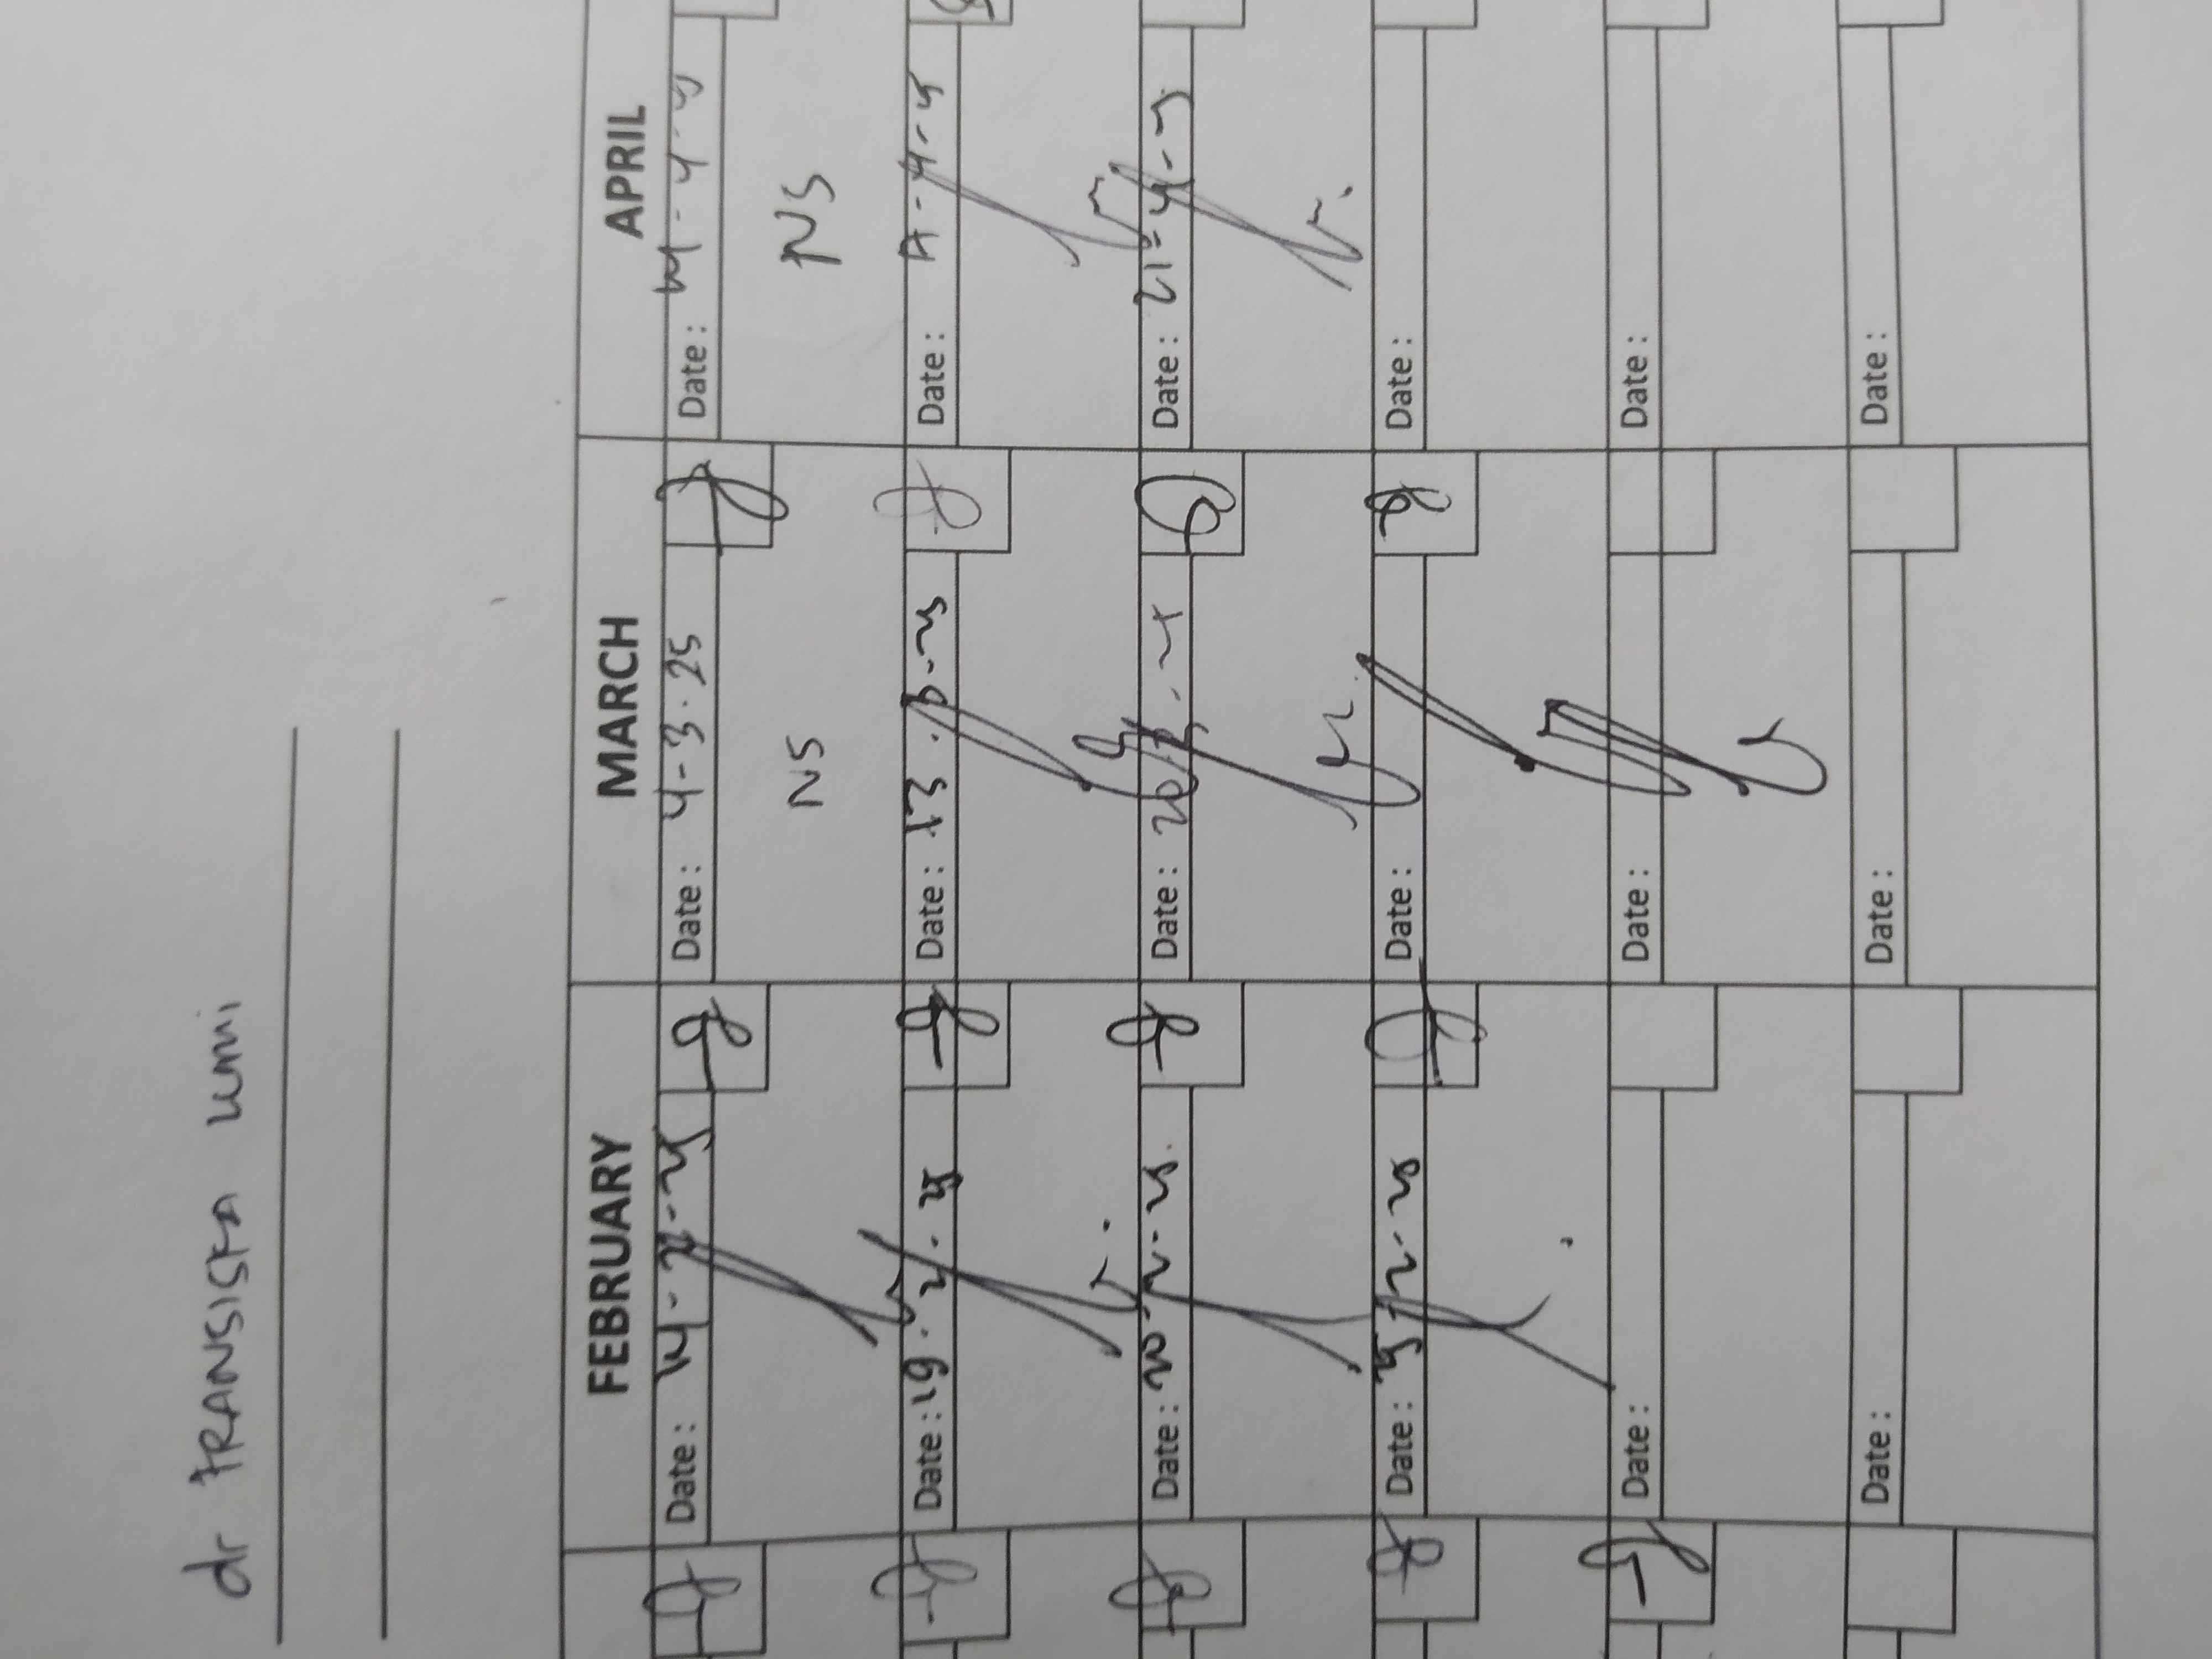 dr FRANSISKA Umi
FEBRUARY MARCH APRIL
Date: 14-2-25 Date: 4-3.25 Date: 14-4-25
NS NS
Date: 19.2.25 Date: 13.3-25 Date:
Date: 20-2-25. Date: 20 Date: 21-4-25
Date: 25-2-25 Date: Date:
Date: Date: Date:
Date: Date: Date: